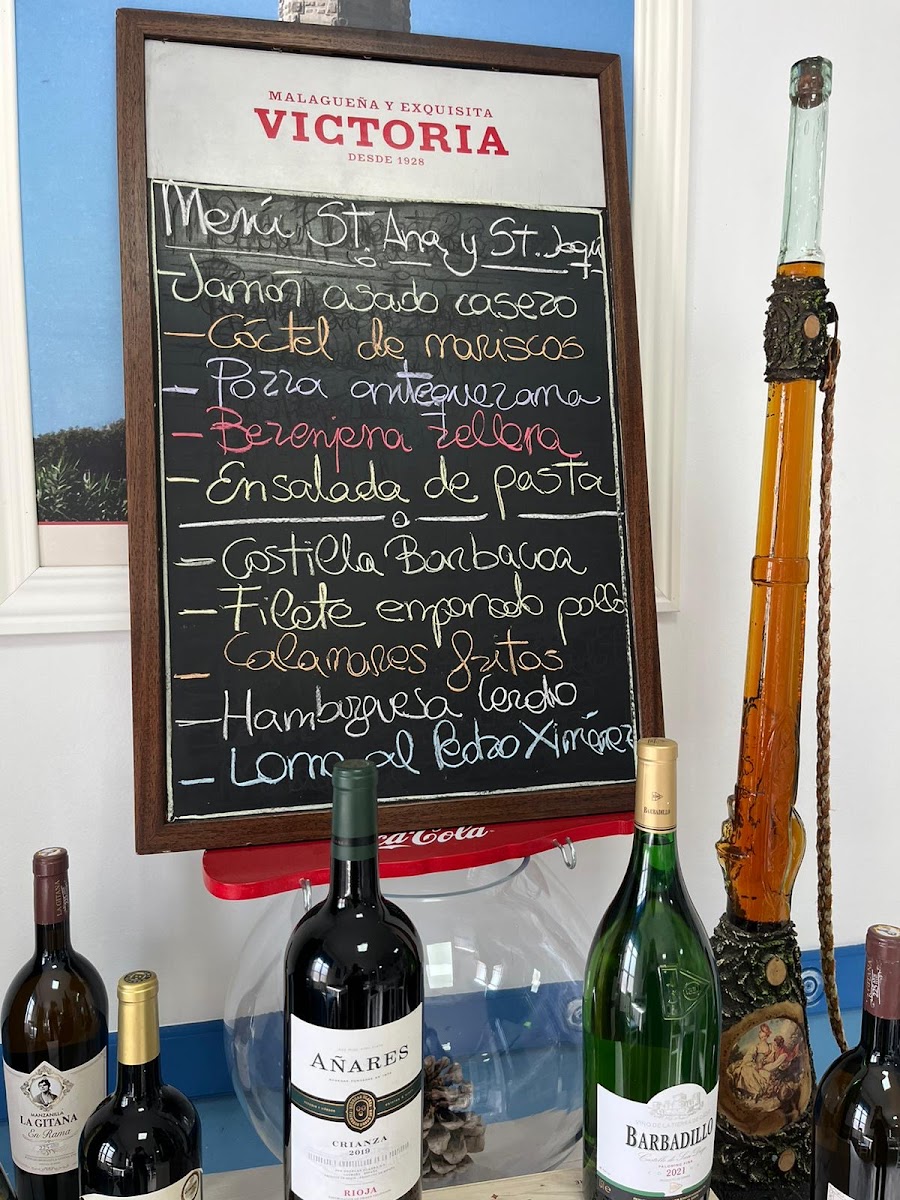 MALAGUEÑA Y EXQUISITA
VICTORIA
DESDE 1928
Menú St. Ana y St. Joaqu
- Jamón asado casero
- Cóctel de mariscos
- Pozza antequerana
- Berenjena rellena
- Ensalada de pasta
- Costilla Barbacoa
- Filete empanado pollo
- Calamares fritos
- Hamburguesa Cerdo
- Lomo al Pedro Ximénez
ca-Cola
LA GITANA
MANZANILLA
LA GITANA
En Rama
AÑARES
CRIANZA
2019
RIOJA
BARBADILLO
BARBADILLO
Castillo de San Diego
PALOMINO FINA
2021